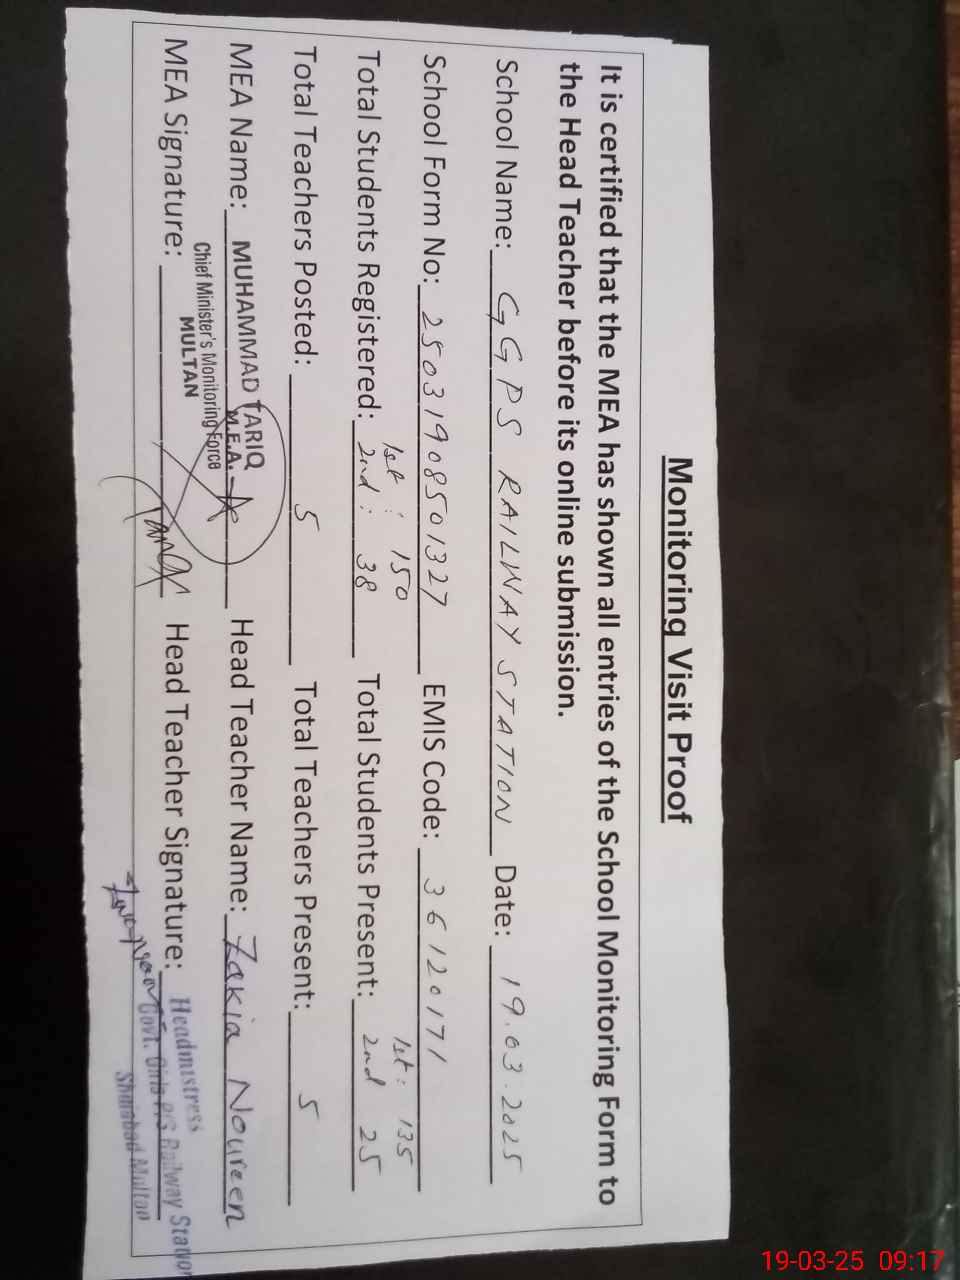 Monitoring Visit Proof
It is certified that the MEA has shown all entries of the School Monitoring Form to
the Head Teacher before its online submission.
School Name: GGPS RAILWAY STATION Date: 19.03.2025
School Form No: 25031908501327 EMIS Code: 36120171
1st : 150 1st : 135
Total Students Registered: 2nd : 38 Total Students Present: 2nd 25
Total Teachers Posted: 5 Total Teachers Present: 5
MEA Name: MUHAMMAD TARIQ Head Teacher Name: Zakia Noureen
M.E.A.
Chief Minister's Monitoring Force
MULTAN
MEA Signature: Head Teacher Signature:
Headmistress
Govt. Girls P/S Railway Station
Shujabad Multan
19-03-25 09:17